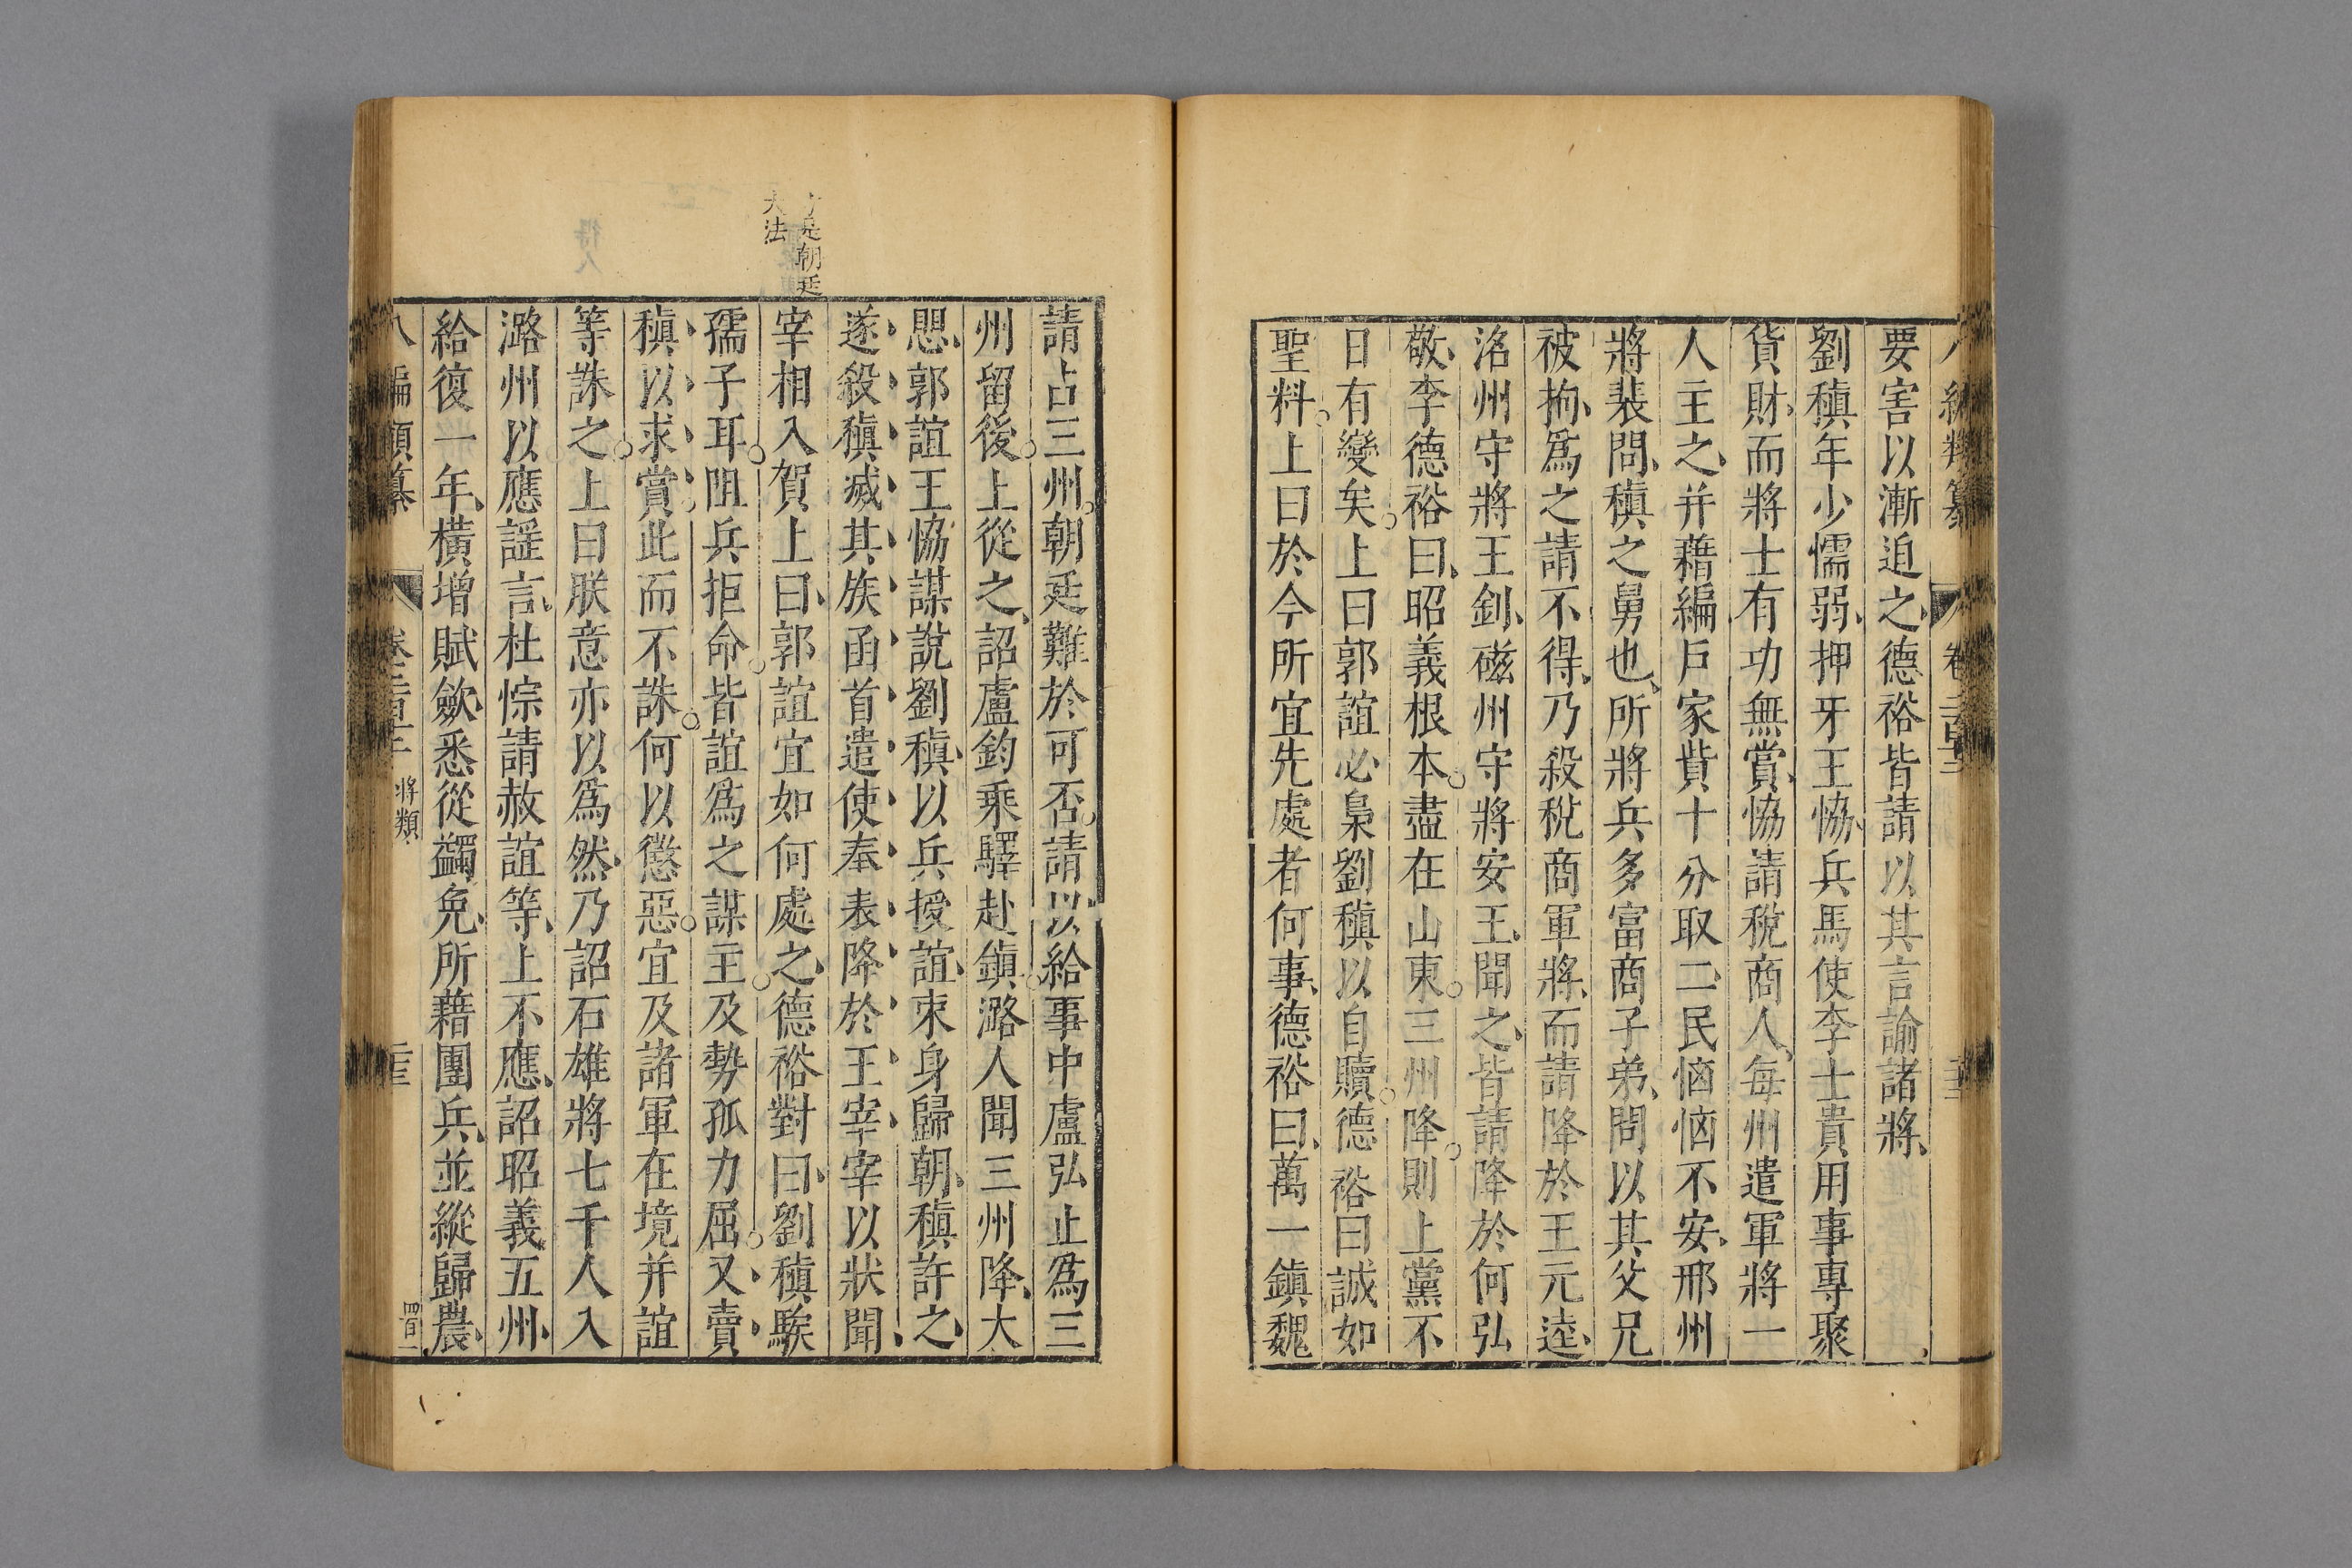 要害以漸迫之德裕皆請以其言諭諸將
劉稹年少懦弱押牙王協兵馬使李士貴用事專聚
貨財而將士有功無賞協請稅商人每州遣軍將一
人主之并藉編戶家貲十分取二民恟恟不安邢州
將裴問稹之舅也所將兵多富商子弟問以其父兄
被拘爲之請不得乃殺稅商軍將而請降於王元逵
洺州守將王釗磁州守將安王聞之皆請降於何弘
敬李德裕曰昭義根本盡在山東三州降則上黨不
日有變矣上曰郭誼必梟劉稹以自贖德裕曰誠如
聖料上曰於今所宜先處者何事德裕曰萬一鎮魏
請占三州朝廷難於可否請以給事中盧弘止爲三
州留後上從之詔盧鈞乘驛赴鎮潞人聞三州降大
思郭誼王協謀說劉稹以兵授誼束身歸朝稹許之
遂殺稹滅其族函首遣使奉表降於王宰宰以狀聞
宰相入賀上曰郭誼宜如何處之德裕對曰劉稹騃
孺子耳阻兵拒命皆誼爲之謀主及勢孤力屈又賣
稹以求賞此而不誅何以懲惡宜及諸軍在境并誼
等誅之上曰朕意亦以爲然乃詔石雄將七千人入
潞州以應謡言杜悰請赦誼等上不應詔昭義五州
給復一年橫增賦斂悉從蠲免所藉團兵並縱歸農
是朝廷
大法
八編類纂
將類